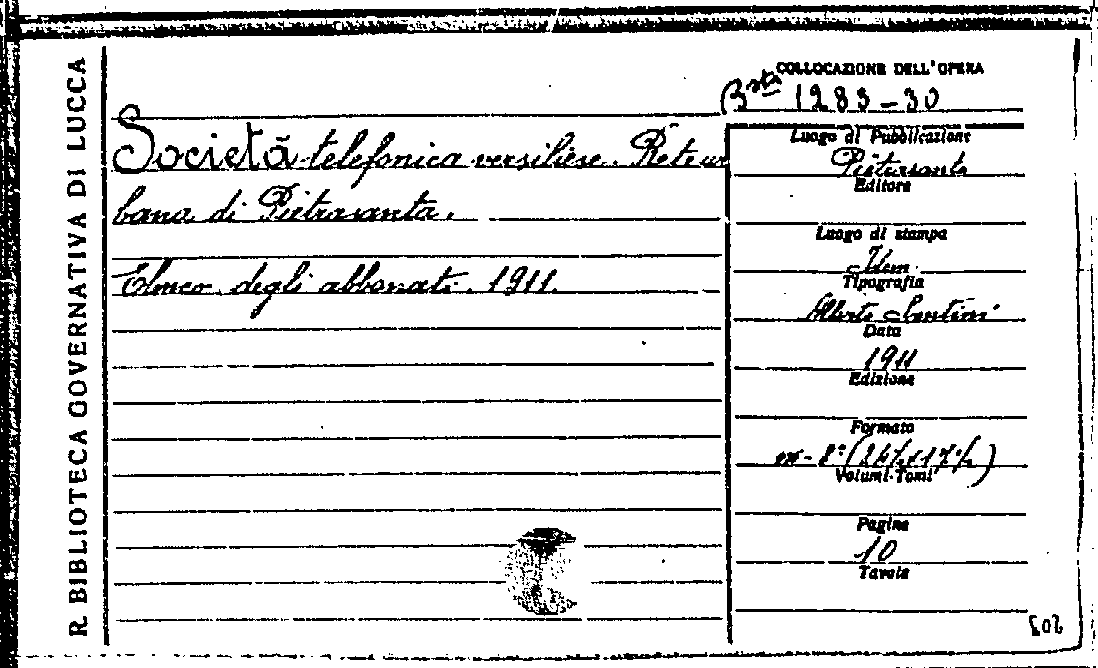 R BIBLIOTECA GOVERNATIVA DI LUCCA
COLLOCAZIONE DELL'OPERA
Bsta 1283-30
Società telefonica versiliese. Rete ur
bana di Pietrasanta.
Elenco degli abbonati. 1911.
Luogo di Pubblicazione
Pietrasanta
Editore
Luogo di stampa
Idem
Tipografia
Alberto Santini
Data
1911
Edizione
Formato
in-8° (24½x17½)
Volumi-Tomi
Pagine
10
Tavole